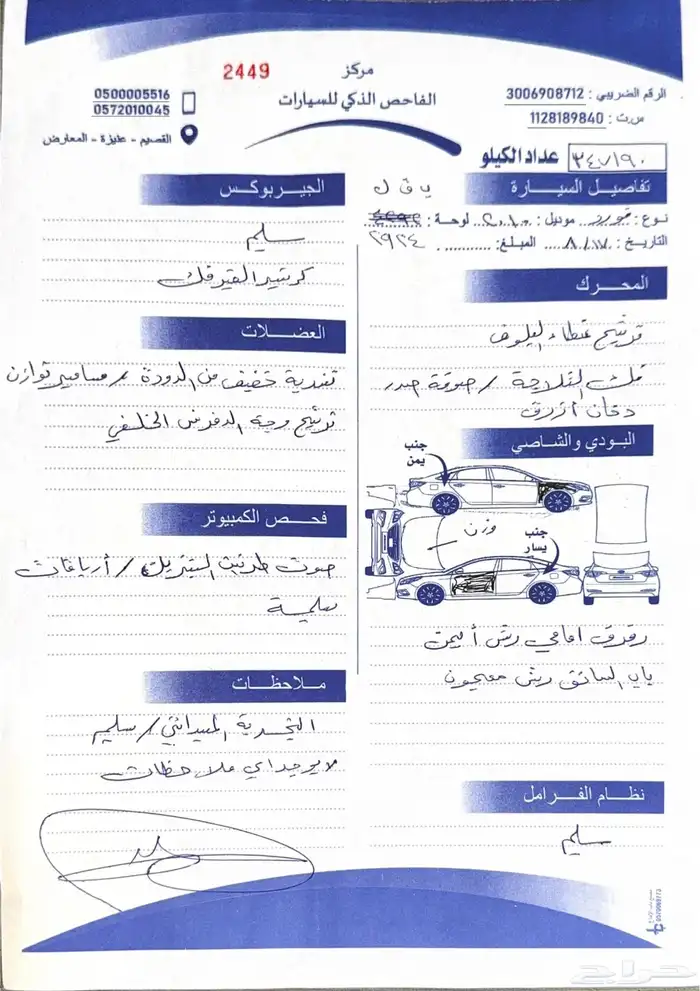 2449
مركز
الفاحص الذكي للسيارات
الرقم الضريبي : 3006908712
س.ت : 1128189840
0500005516
0572010045
القصيم - عنيزة - المعارض
عداد الكيلو ٣٤٧١٩٠
تفاصيل السيارة
نوع : فورد موديل : ٢٠١٠ لوحة :
التاريخ : ٨/١٧ المبلغ : ٢٩٢٤
المحرك
ترشيح غطاء البلوف
فلت الثلاجة / صوفة صدر
دخان أزرق
البودي والشاصي
جنب يمن
وزن
جنب يسار
رفرف امامي رش أيمن
باب السائق رش معجون
نظام الفرامل
سليم
الجيربوكس
سليم
كرسي القير فك
العضلات
تغذية خفيف من الدودة / مسامير توازن
ترشيح وجه الدفرنس الخلفي
فحص الكمبيوتر
صوت طرمبة الستيرنق / أرباقات
سليمة
ملاحظات
التجربة الميداني / سليم
لا يوجد اي ملاحظات
حراج